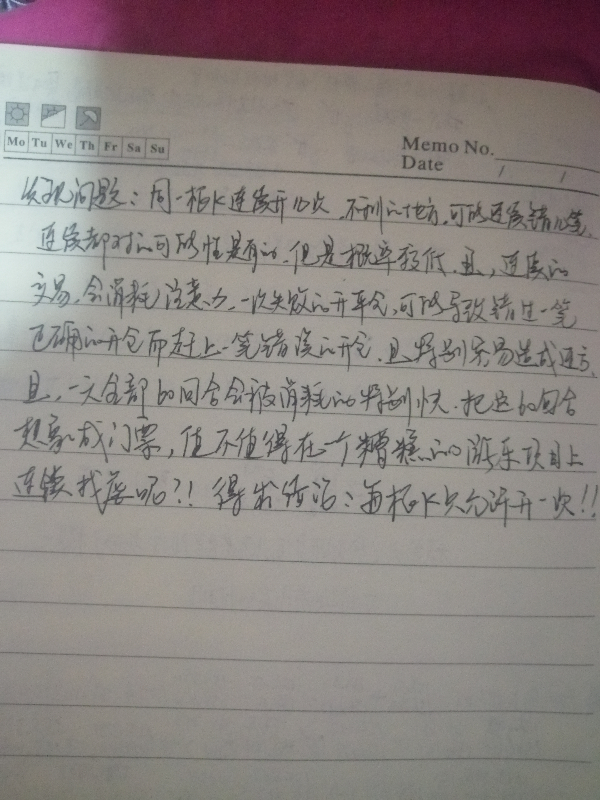 Mo Tu We Th Fr Sa Su
Memo No.
Date / /
发现问题：同一根K连续开几次，不利的地方，可能连续错几笔，
连续都对的可能性是有的，但是概率较低，且，连续的
交易，会消耗注意力，一次失败的开平仓，可能导致错过一笔
正确的开仓而赶上一笔错误的开仓，且特别容易造成
且，一天全部的回合会被消耗的特别快，把这的回合
想象成门票，值不值得在一个糟糕的游乐项目上
连续找虐呢？！得出结论：每根K只允许开一次！！